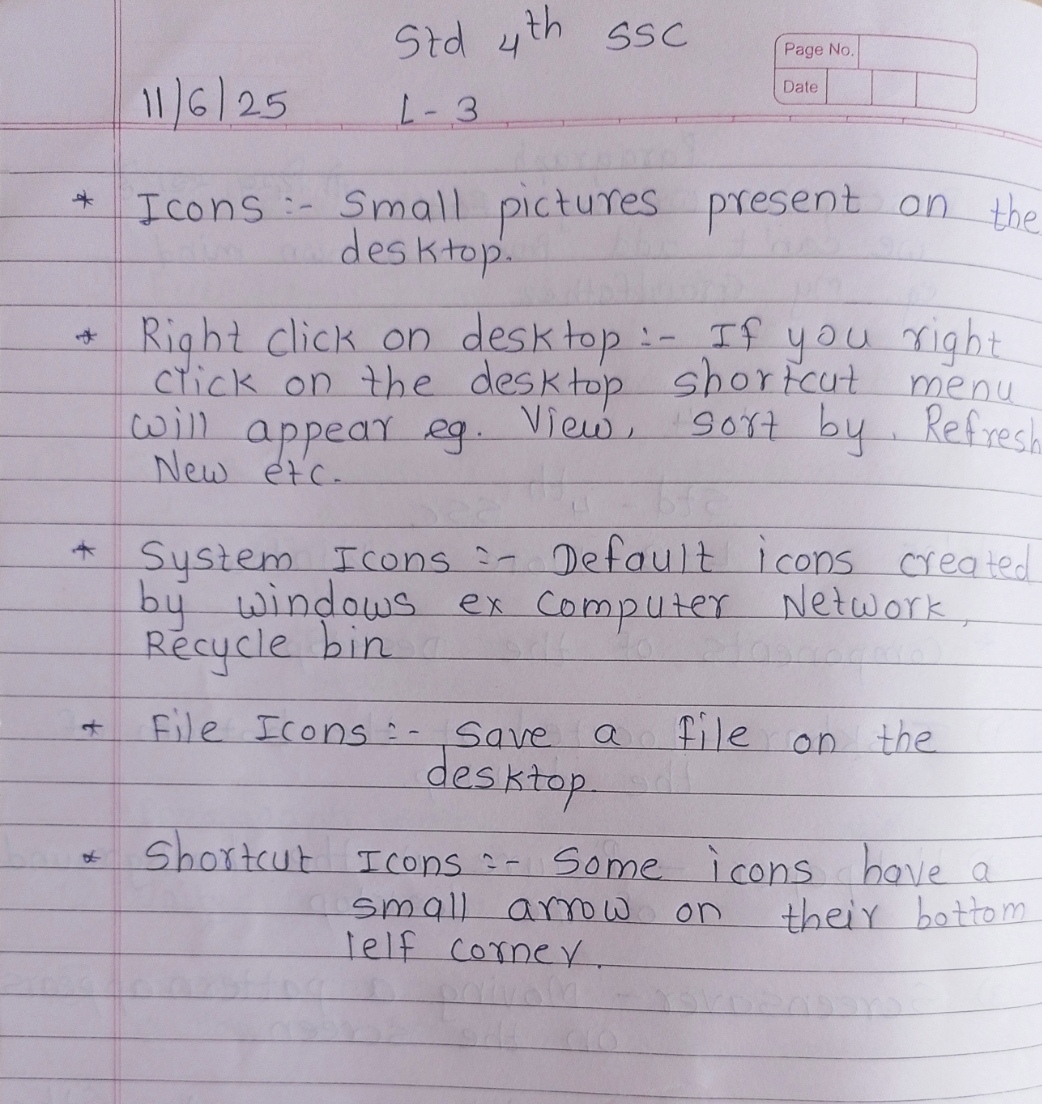 Std 4th SSC
Page No.
Date
11/6/25 L-3
* Icons :- Small pictures present on the
desktop.
* Right click on desktop :- If you right
click on the desktop shortcut menu
will appear eg. View, sort by, Refresh
New etc.
* System Icons :- Default icons created
by windows ex Computer Network,
Recycle bin
* File Icons :- Save a file on the
desktop.
* Shortcut Icons :- Some icons have a
small arrow on their bottom
lelf corner.